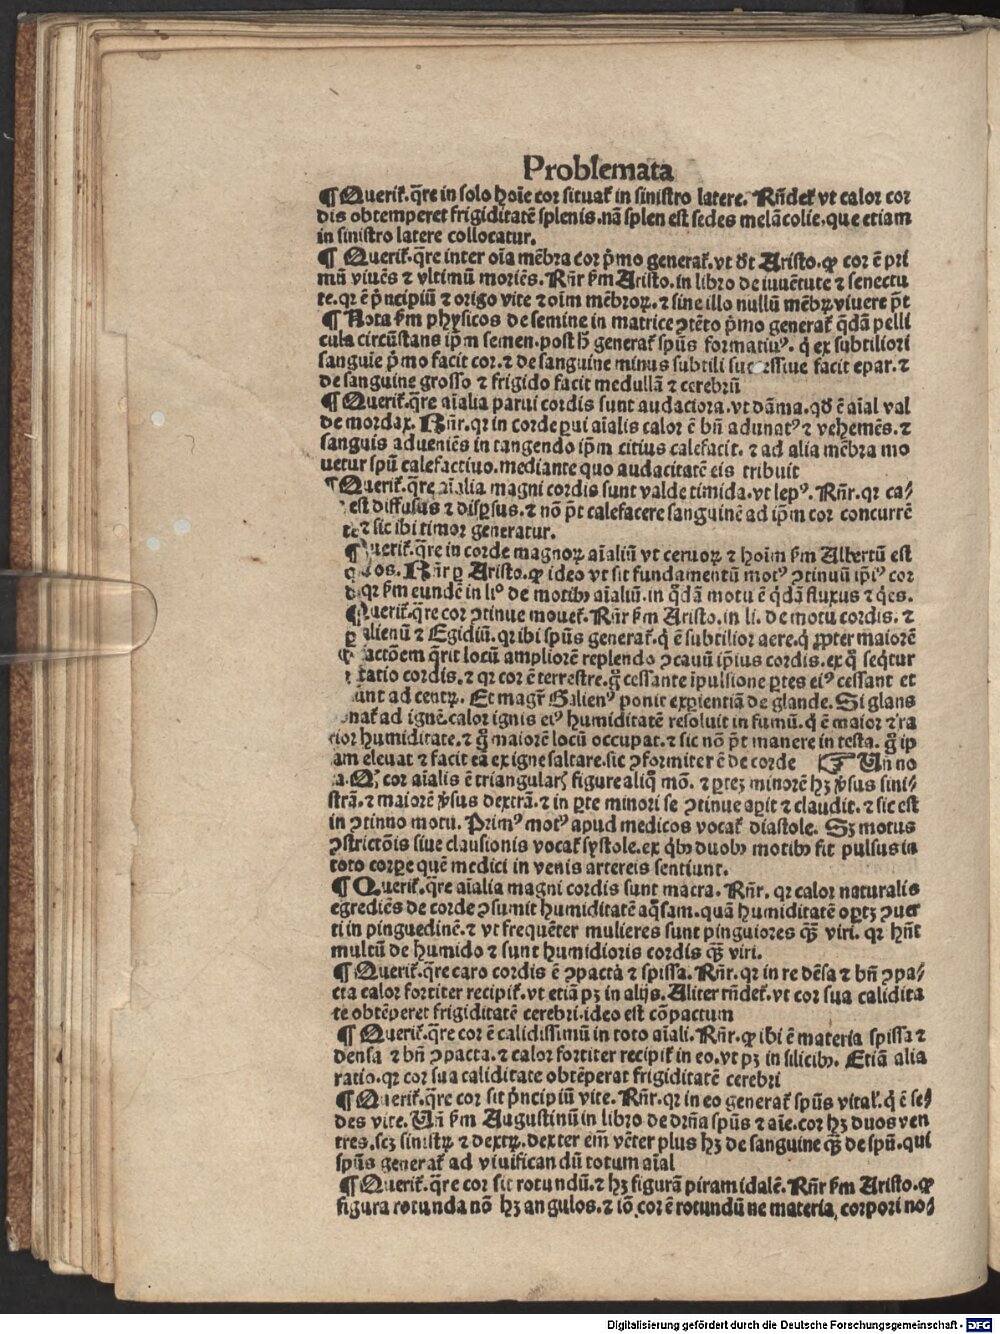 Problemata
¶ Querit᷑. q̄re in solo hoīe cor situat᷑ in sinistro latere. Rn̄det᷑ vt calor cor
dis obtemperet frigiditatē splenis. nā splen est sedes melācolie. que etiam
in sinistro latere collocatur.
¶ Querit᷑. q̄re inter oīa mēbra cor p̄mo generat᷑. vt dt̄ Aristo. ꝙ cor ē pri
mū viuēs ⁊ vltimū moriēs. Rn̄r ẜm Aristo. in libro de iuuētute ⁊ senectu
te. qr ē p̄ncipiū ⁊ origo vite ⁊ oīm mēbroꝝ. ⁊ sine illo nullū mēbꝝ viuere p̄t
¶ Nota ẜm physicos de semine in matrice ↄtēto p̄mo generat᷑ q̄dā pelli
cula circūstans ip̄m semen. post hͦ generat᷑ spūs formatiuꝰ. q̇ ex subtiliori
sanguīe p̄mo facit cor. ⁊ de sanguine minus subtili successiue facit epar. ⁊
de sanguine grosso ⁊ frigido facit medullā ⁊ cerebrū
¶ Querit᷑. q̄re aīalia parui cordis sunt audaciora. vt dāma. qd̄ ē aīal val
de mordax. Rn̄r. qr in corde ꝑui aīalis calor ē bn̄ adunatꝰ ⁊ vehemēs. ⁊
sanguis adueniēs in tangendo ip̄m citius calefacit. ⁊ ad alia mēbra mo
uetur spū calefactiuo. mediante quo audacitatē eis tribuit
¶ Querit᷑. q̄re aīalia magni cordis sunt valde timida. vt lepꝰ. Rn̄r. qr ca⸗
est diffusus ⁊ disꝑsus. ⁊ nō p̄t calefacere sanguinē ad ip̄m cor concurrē
te ⁊ sic ibi timor generatur.
¶ Querit᷑. q̄re in corde magnoꝝ aīaliū vt ceruoꝝ ⁊ hoīm ẜm Albertū est
os. Rn̄r ꝑ Aristo. ꝙ ideo vt sit fundamentū motꝰ ↄtinuū ip̄iꝰ cor
qr ẜm eundē in liᵒ de motibꝫ aīaliū. in q̄dā motu ē q̄dā fluxus ⁊ q̇es.
¶ Querit᷑. q̄re cor ↄtinue mouet᷑. Rn̄r ẜm Aristo. in li. de motu cordis. ⁊
ꝑ alienū ⁊ Egidiū. qr ibi spūs generat᷑. q̇ ē subtilior aere. q̇ ꝓpter maiorē
actōem q̄rit locū ampliorē replendo ↄcauū ip̄ius cordis. ex q̊ seq̇tur
tatio cordis. ⁊ qr cor ē terrestre. g̊ cessante īpulsione ꝑtes eiꝰ cessant et
unt ad centꝝ. Et magr̄ Galienꝰ ponit exꝑientiā de glande. Si glans
nat᷑ ad ignē. calor ignis eiꝰ humiditatē resoluit in fumū. q̇ ē maior ⁊ ra
rior humiditate. ⁊ g̊ maiorē locū occupat. ⁊ sic nō p̄t manere in testa. g̊ ip
am eleuat ⁊ facit eā ex igne saltare. sic ↄformiter ē de corde ☞ Un̄ no
a. Qꝫ cor aīalis ē triangularꝭ figure aliq̊ mō. ⁊ ꝑteꝫ minorē hꝫ v̓sus sini⸗
strā. ⁊ maiorē v̓sus dextrā. ⁊ in ꝑte minori se ↄtinue aꝑit ⁊ claudit. ⁊ sic est
in ↄtinno motu. Primꝰ motꝰ apud medicos vocat᷑ diastole. Sꝫ motus
ↄstrictōnis siue clausionis vocat᷑ systole. ex q̇bꝫ duobꝫ motibꝫ fit pulsus in
toto corꝑe quē medici in venis artereis sentiunt.
¶ Querit᷑. q̄re aīalia magni cordis sunt macra. Rn̄r. qr calor naturalis
egrediēs de corde ↄsumit humiditatē aq̊sam. quā humiditatē oꝑtꝫ ↄuer
ti in pinguedinē. ⁊ vt frequēter mulieres sunt pinguiores q̄ꝫ viri. qr hn̄t
multū de humido ⁊ sunt humidioris cordis q̄ꝫ viri.
¶ Querit᷑. q̄re caro cordis ē ↄpacta ⁊ spissa. Rn̄r. qr in re dēsa ⁊ bn̄ ↄpa⸗
cta calor fortiter recipit᷑. vt etiā pꝫ in alijs. Aliter rn̄det᷑. vt cor sua calidita
te obtēperet frigiditatē cerebri. ideo est cōpactum
¶ Querit᷑. q̄re cor ē calidissimū in toto aīali. Rn̄r. ꝙ ibi ē materia spissa ⁊
densa ⁊ bn̄ ↄpacta. ⁊ calor fortiter recipit᷑ in eo. vt pꝫ in silicibꝫ. Etiā alia
ratio. qr cor sua caliditate obtēperat frigiditatē cerebri
¶ Querit᷑. q̄re cor sit p̄ncipiū vite. Rn̄r. qr in eo generat᷑ spūs vital᷑. q̇ ē se⸗
des vite. Un̄ ẜm Augustinū in libro de drn̄a spūs ⁊ aīe. cor hꝫ duos ven
tres. scꝫ sinistꝝ ⁊ dextꝝ. dexter em̄ vēter plus hꝫ de sanguine q̄ꝫ de spū. qui
spūs generat᷑ ad viuificandū totum aīal
¶ Querit᷑. q̄re cor sit rotundū. ⁊ hꝫ figurā piramidalē. Rn̄r ẜm Aristo. ꝙ
figura rotunda nō hꝫ angulos. ⁊ iō cor ē rotundū ne materia corpori no⸗
Digitalisierung gefördert durch die Deutsche Forschungsgemeinschaft - DFG